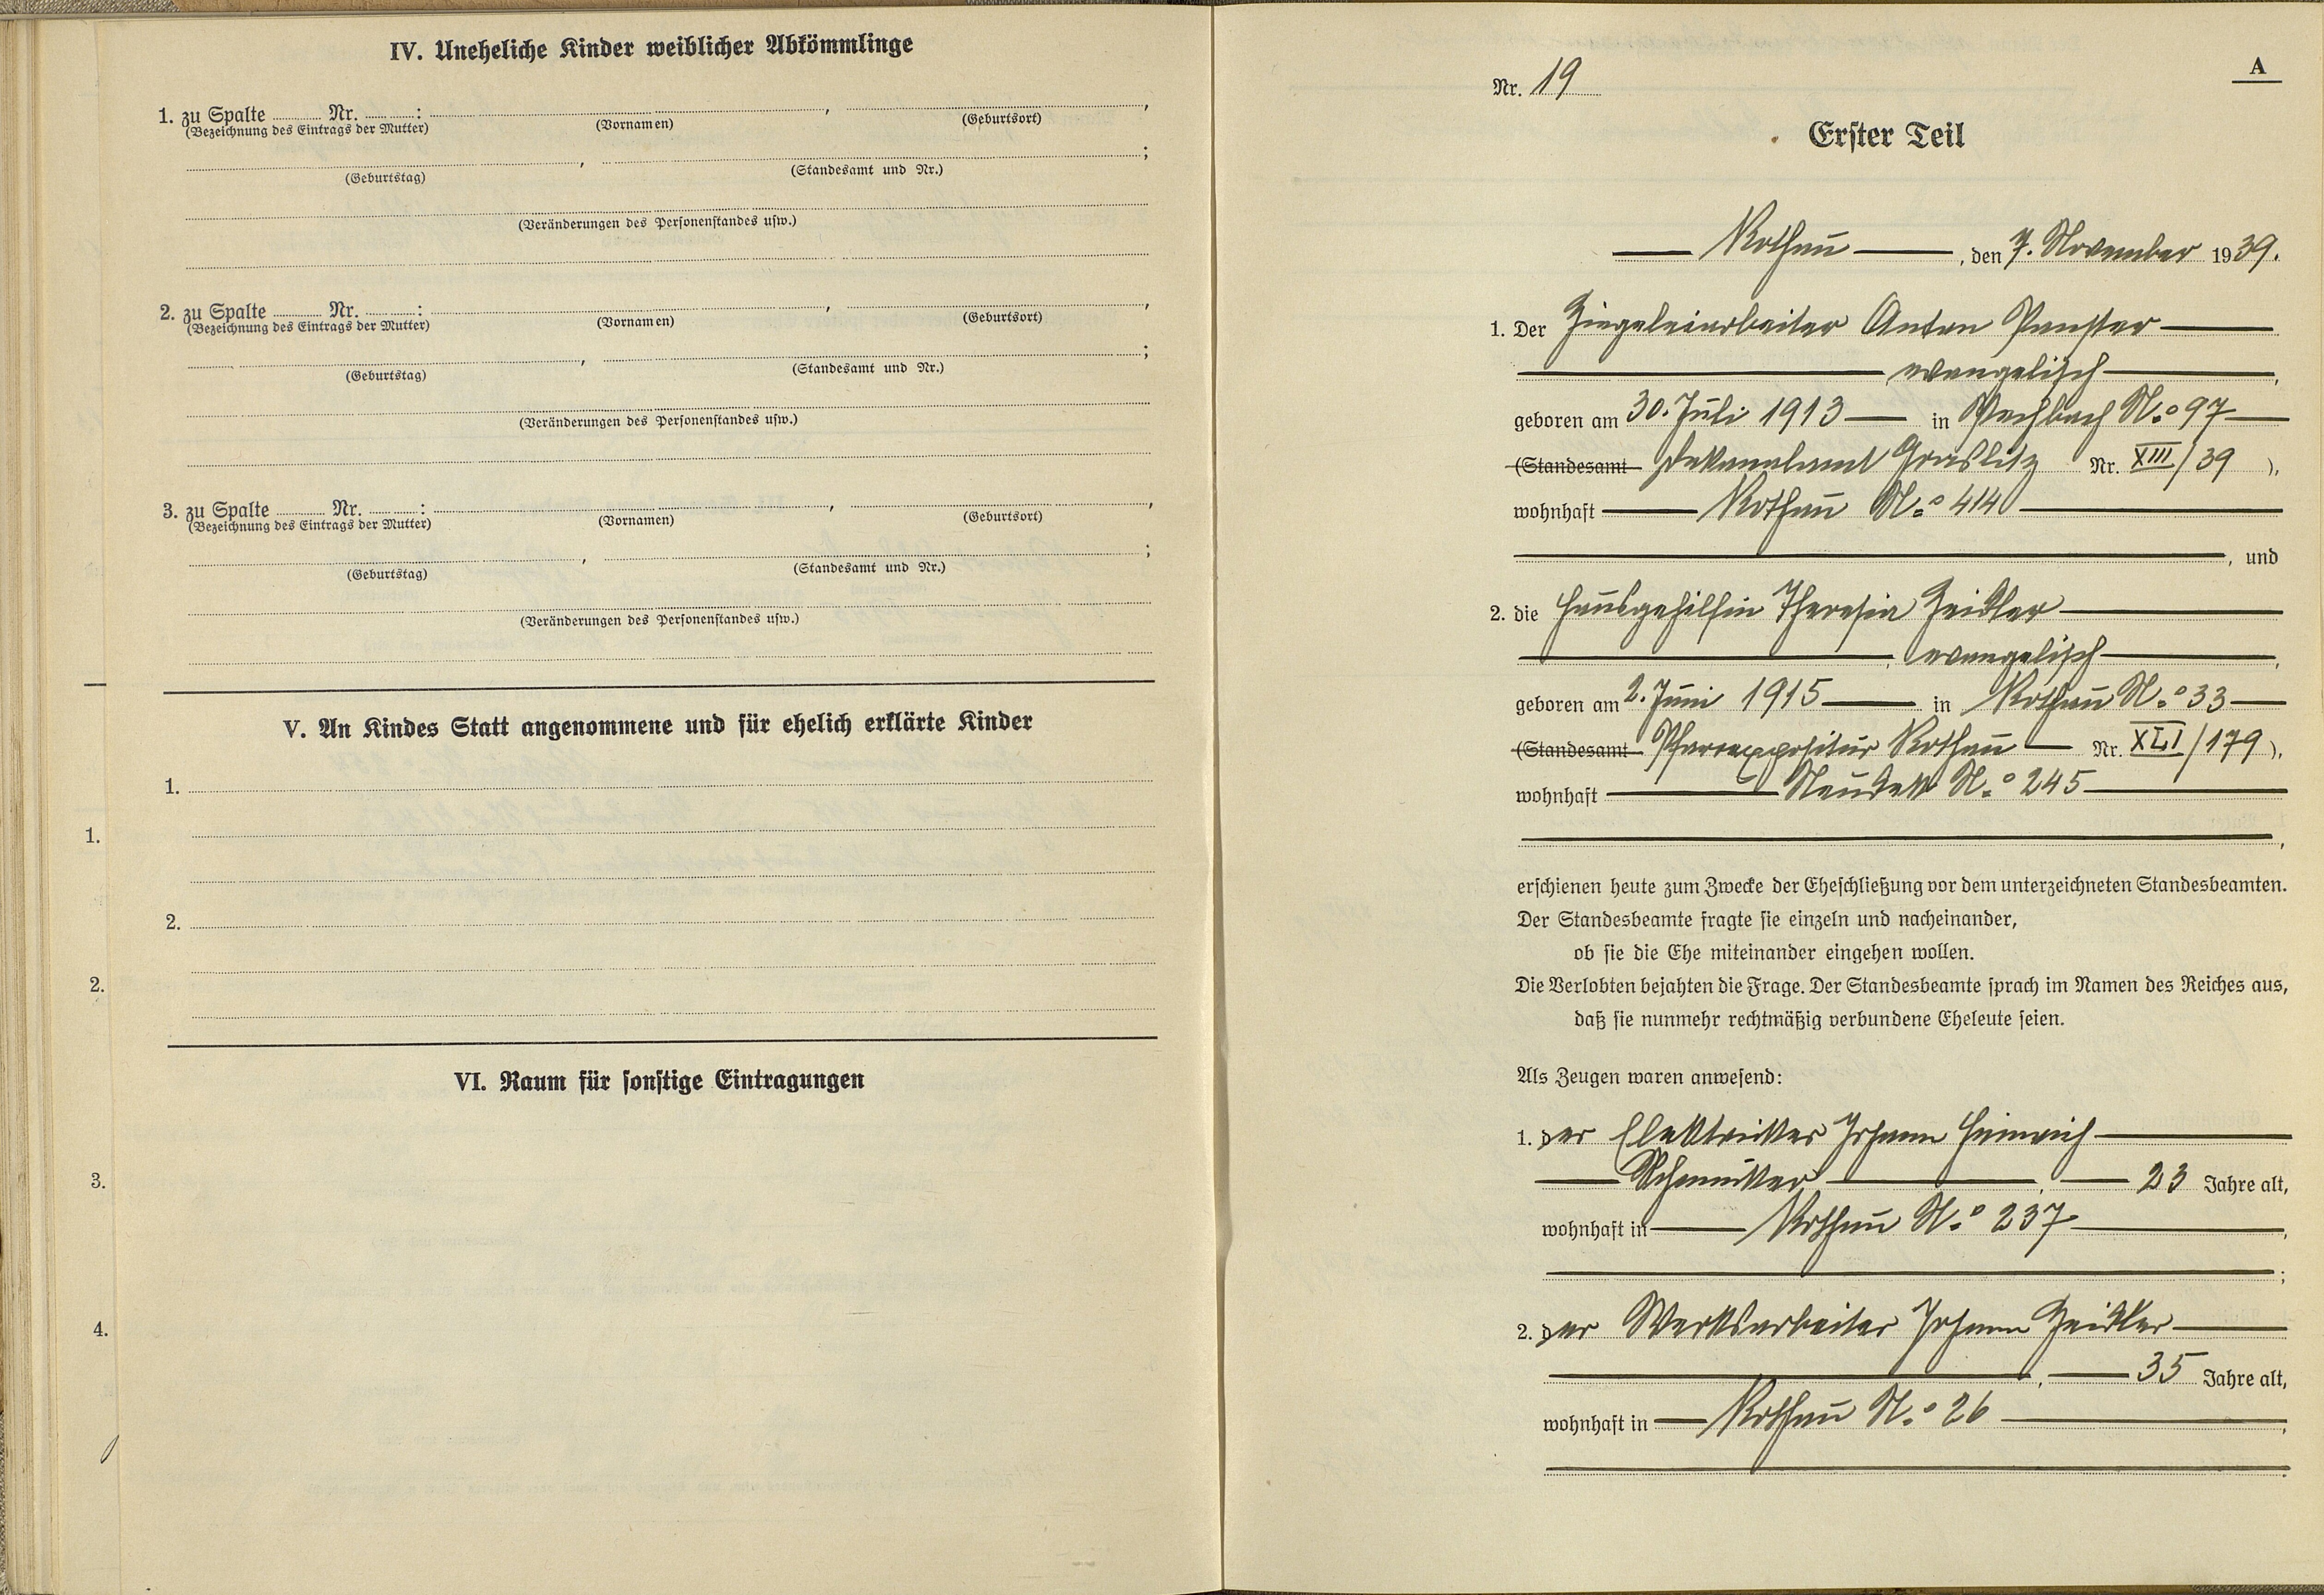 IV. Uneheliche Kinder weiblicher Abkömmlinge
1. zu Spalte ........ Nr. ........: ........, ........,
(Bezeichnung des Eintrags der Mutter) (Vornamen) (Geburtsort)
........, ........;
(Geburtstag) (Standesamt und Nr.)
(Veränderungen des Personenstandes usw.)
2. zu Spalte ........ Nr. ........: ........, ........,
(Bezeichnung des Eintrags der Mutter) (Vornamen) (Geburtsort)
........, ........;
(Geburtstag) (Standesamt und Nr.)
(Veränderungen des Personenstandes usw.)
3. zu Spalte ........ Nr. ........: ........, ........,
(Bezeichnung des Eintrags der Mutter) (Vornamen) (Geburtsort)
........, ........;
(Geburtstag) (Standesamt und Nr.)
(Veränderungen des Personenstandes usw.)
V. An Kindes Statt angenommene und für ehelich erklärte Kinder
1.
1.
2.
2.
VI. Raum für sonstige Eintragungen
3.
4.
A
Nr. 19
Erster Teil
Rothau, den 7. November 1939.
1. Der Ziegeleiarbeiter Anton
evangelisch,
geboren am 30. Juli 1913 in Pechbach N.o 97
(Standesamt Dekanalamt Graslitz Nr. XIII/39),
wohnhaft Rothau N.o 414
, und
2. die Hausgehilfin Theresia Zeidler
, evangelisch,
geboren am 2. Juni 1915 in Rothau N.o 33
(Standesamt Pfarrexpositur Rothau Nr. XLI/179),
wohnhaft Neudek N.o 245
,
erschienen heute zum Zwecke der Eheschließung vor dem unterzeichneten Standesbeamten.
Der Standesbeamte fragte sie einzeln und nacheinander,
ob sie die Ehe miteinander eingehen wollen.
Die Verlobten bejahten die Frage. Der Standesbeamte sprach im Namen des Reiches aus,
daß sie nunmehr rechtmäßig verbundene Eheleute seien.
Als Zeugen waren anwesend:
1. der Elektriker Johann Heinrich
Schmutzer, 23 Jahre alt,
wohnhaft in Rothau N.o 237,
;
2. der Werksarbeiter Johann Zeidler
, 35 Jahre alt,
wohnhaft in Rothau N.o 26,